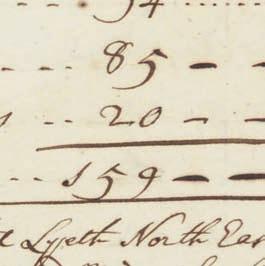 54
85
20
159
Lyeth North Eas